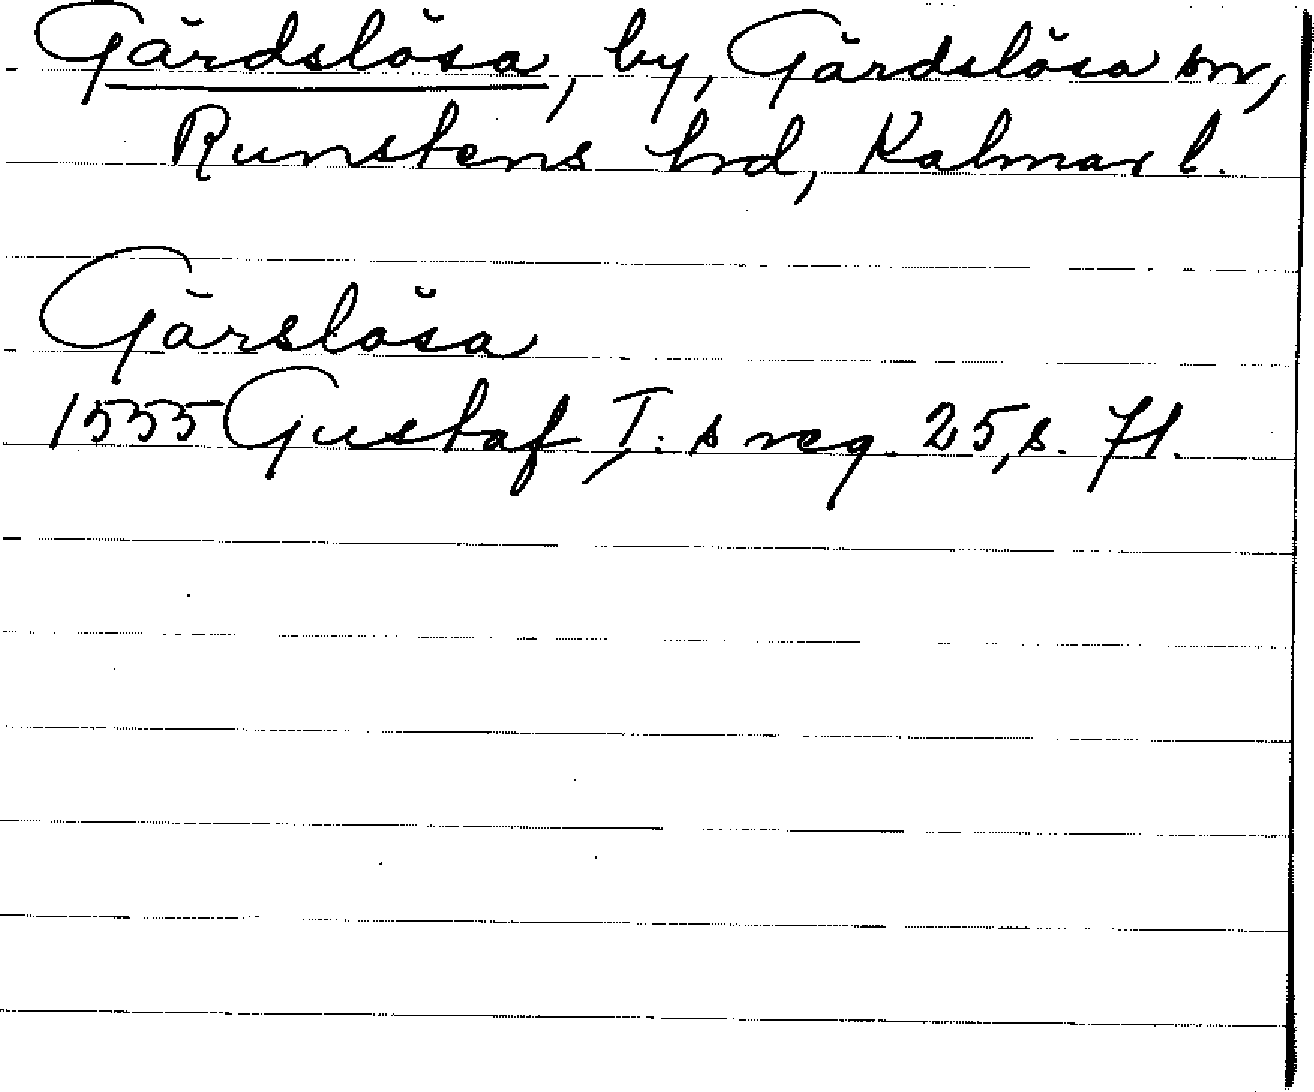 Gärdslösa, by, Gärdslösa sn,
Runstens hrd, Kalmar l.
Gärslösa
1555 Gustaf I:s reg. 25, s. 71.